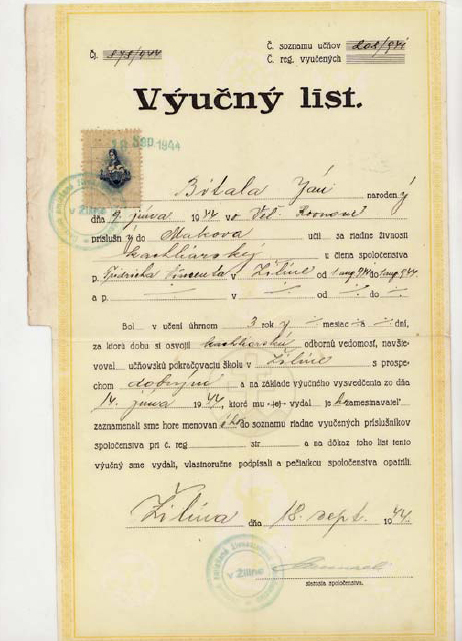 Čj. 878/944
Č. soznamu učňov 208/941
Č. reg. vyučených
Výučný list.
18 Sep. 1944
v Žiline
Bitala Ján narodený
dňa 9. júna 19 vo Veľ.
príslušný do Makova učil sa riadne živnosti
kachliarskej u člena spoločenstva
p. Fridricha Vincenta v Žiline od 1 aug. 941 do 1 aug. 944.
a p. v od do
Bol v učení úhrnom 3 roky mesiac dní,
za ktorú dobu si osvojil kachliarskú odbornú vedomosť, navšte-
voval učňovskú pokračovaciu školu v Žiline s prospe-
chom dobrým a na základe výučného vysvedčenia zo dňa
14. júna 1944, ktoré mu-jej vydal zamesnávateľ
zaznamenali sme hore menovaného do soznamu riadne vyučených príslušníkov
spoločenstva pri č. reg str a na dôkaz toho list tento
výučný sme vydali, vlastnoručne podpísali a pečiatkou spoločenstva opatrili.
Žilina dňa 18. sept. 1944.
v Žiline
starosta spoločenstva.